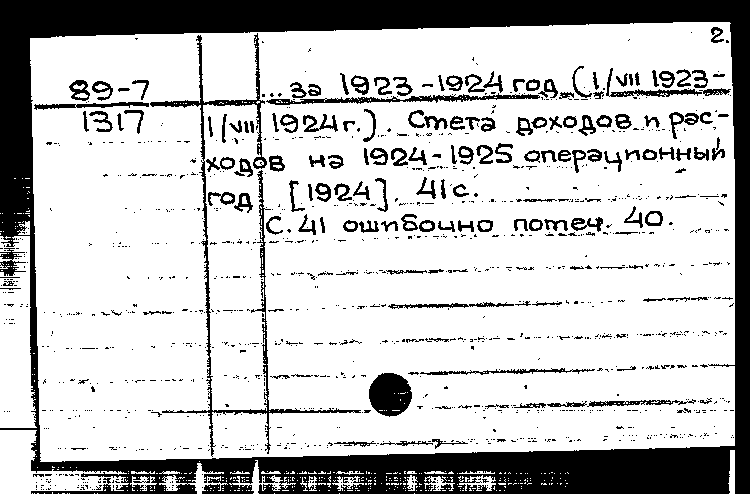 2.
89-7 ... за 1923-1924 год (1/VII 1923-
1317 1/VII 1924 г.). Смета доходов и рас-
ходов на 1924-1925 операционный
год [1924] 41 с.
С. 41 ошибочно помеч. 40.